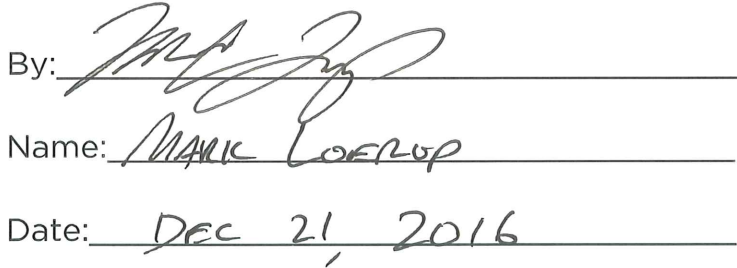 By:
Name: MARK LOERUP
Date: DEC 21, 2016